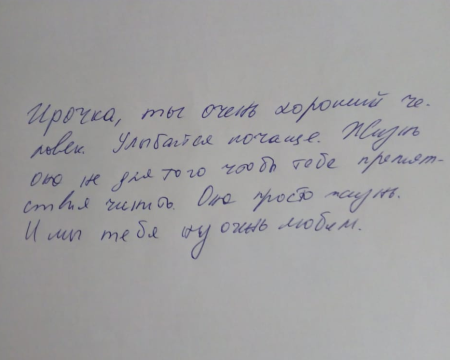 Ирочка, ты очень хороший че-
ловек. Улыбайся почаще. Жизнь
она не для того чтобы тебе препят-
ствия чинить. Она просто жизнь.
И мы тебя ну очень любим.